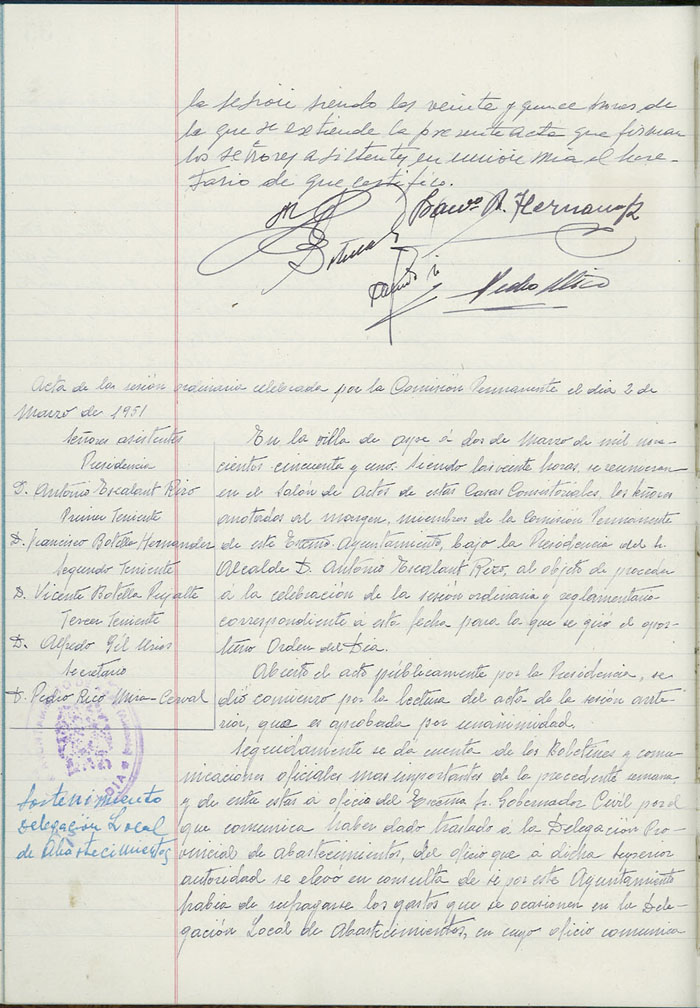 la sesión siendo las veinte y quince horas, de
la que se extiende la presente acta que firman
los señores asistentes, en unión mía el Secre-
tario de que certifico.
Hernández
Botella
Pedro Rico
Acta de la sesión ordinaria celebrada por la Comisión Permanente el día 2 de
Marzo de 1951
Señores asistentes
Presidencia
D. Antonio Escalant Rizo
Primer Teniente
D. Francisco Botella Hernandez
Segundo Teniente
D. Vicente Botella
Tercer Teniente
D. Alfredo Gil
Secretario
D. Pedro Rico Mira-Cerval
En la villa de aspe á dos de Marzo de mil nove-
cientos cincuenta y uno. Siendo las veinte horas, se reunieron
en el Salón de Actos de estas Casas Consistoriales, los señores
anotados al margen, miembros de la Comisión Permanente
de este Excmo. Ayuntamiento, bajo la Presidencia del Sr.
Alcalde D. Antonio Escalant Rizo, al objeto de proceder
a la celebración de la sesión ordinaria y reglamentaria
correspondiente a esta fecha para la que se giró el opor-
tuno Orden del Día.
Abierto el acto públicamente por la Presidencia, se
dió comienzo por la lectura del acta de la sesión ante-
rior, que es aprobada por unanimidad.
Seguidamente se da cuenta de los Boletines y comu-
nicaciones oficiales mas importantes de la precedente semana,
y de entre estas a oficio del Excmo. Sr. Gobernador Civil por el
que comunica haber dado traslado a la Delegación Pro-
vincial de abastecimientos, del oficio que á dicha superior
autoridad se elevó en consulta de si por este Ayuntamiento
había de sufragarse los gastos que se ocasionen en la Dele-
gación Local de Abastecimientos, en cuyo oficio comunica
Sostenimiento
Delegación Local
de Abastecimientos